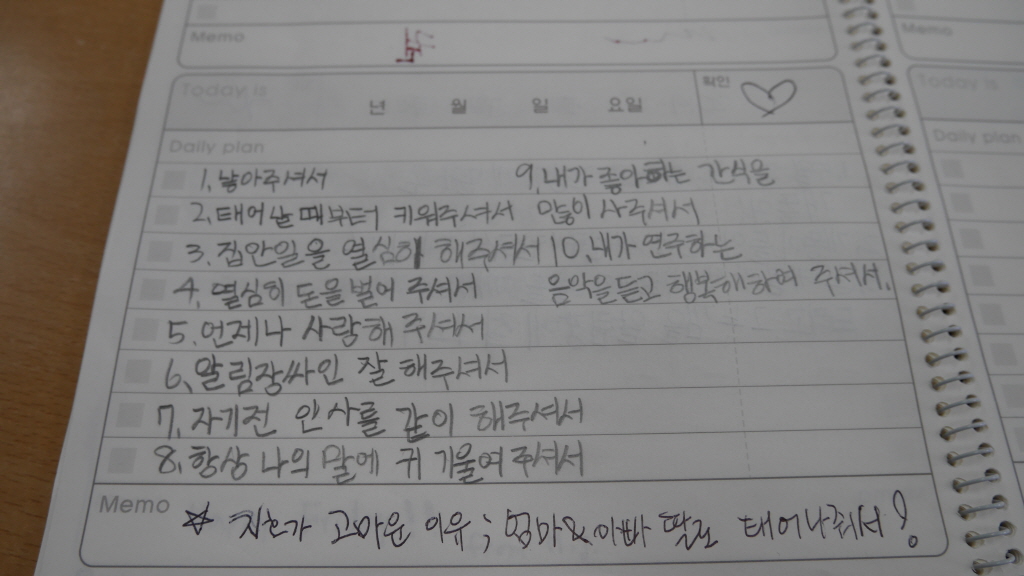 Memo
Memo
Today is
년 월 일 요일
확인
Today is
Daily plan
Daily plan
1. 낳아주셔서
2. 태어날 때부터 키워주셔서
3. 집안일을 열심히 해주셔서
4. 열심히 돈을 벌어 주셔서
5. 언제나 사랑해 주셔서
6. 알림장싸인 잘 해주셔서
7. 자기전 인사를 같이 해주셔서
8. 항상 나의 말에 귀 기울여 주셔서
9. 내가 좋아하는 간식을
많이 사주셔서
10. 내가 연주하는
음악을 듣고 행복해하여 주셔서.
Memo
☆ 가 고마운 이유; 엄마&아빠 딸로 태어나줘서!